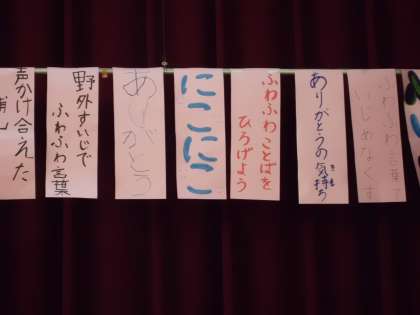 ふわふわ言葉で
いじめなくす
ありがとうの気持ち
ふわふわことばを
ひろげよう
にこにこ
ありがとう
野外すいじで
ふわふわ言葉
声かけ合えた